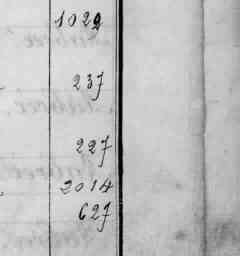 1029
237
227
2014
627